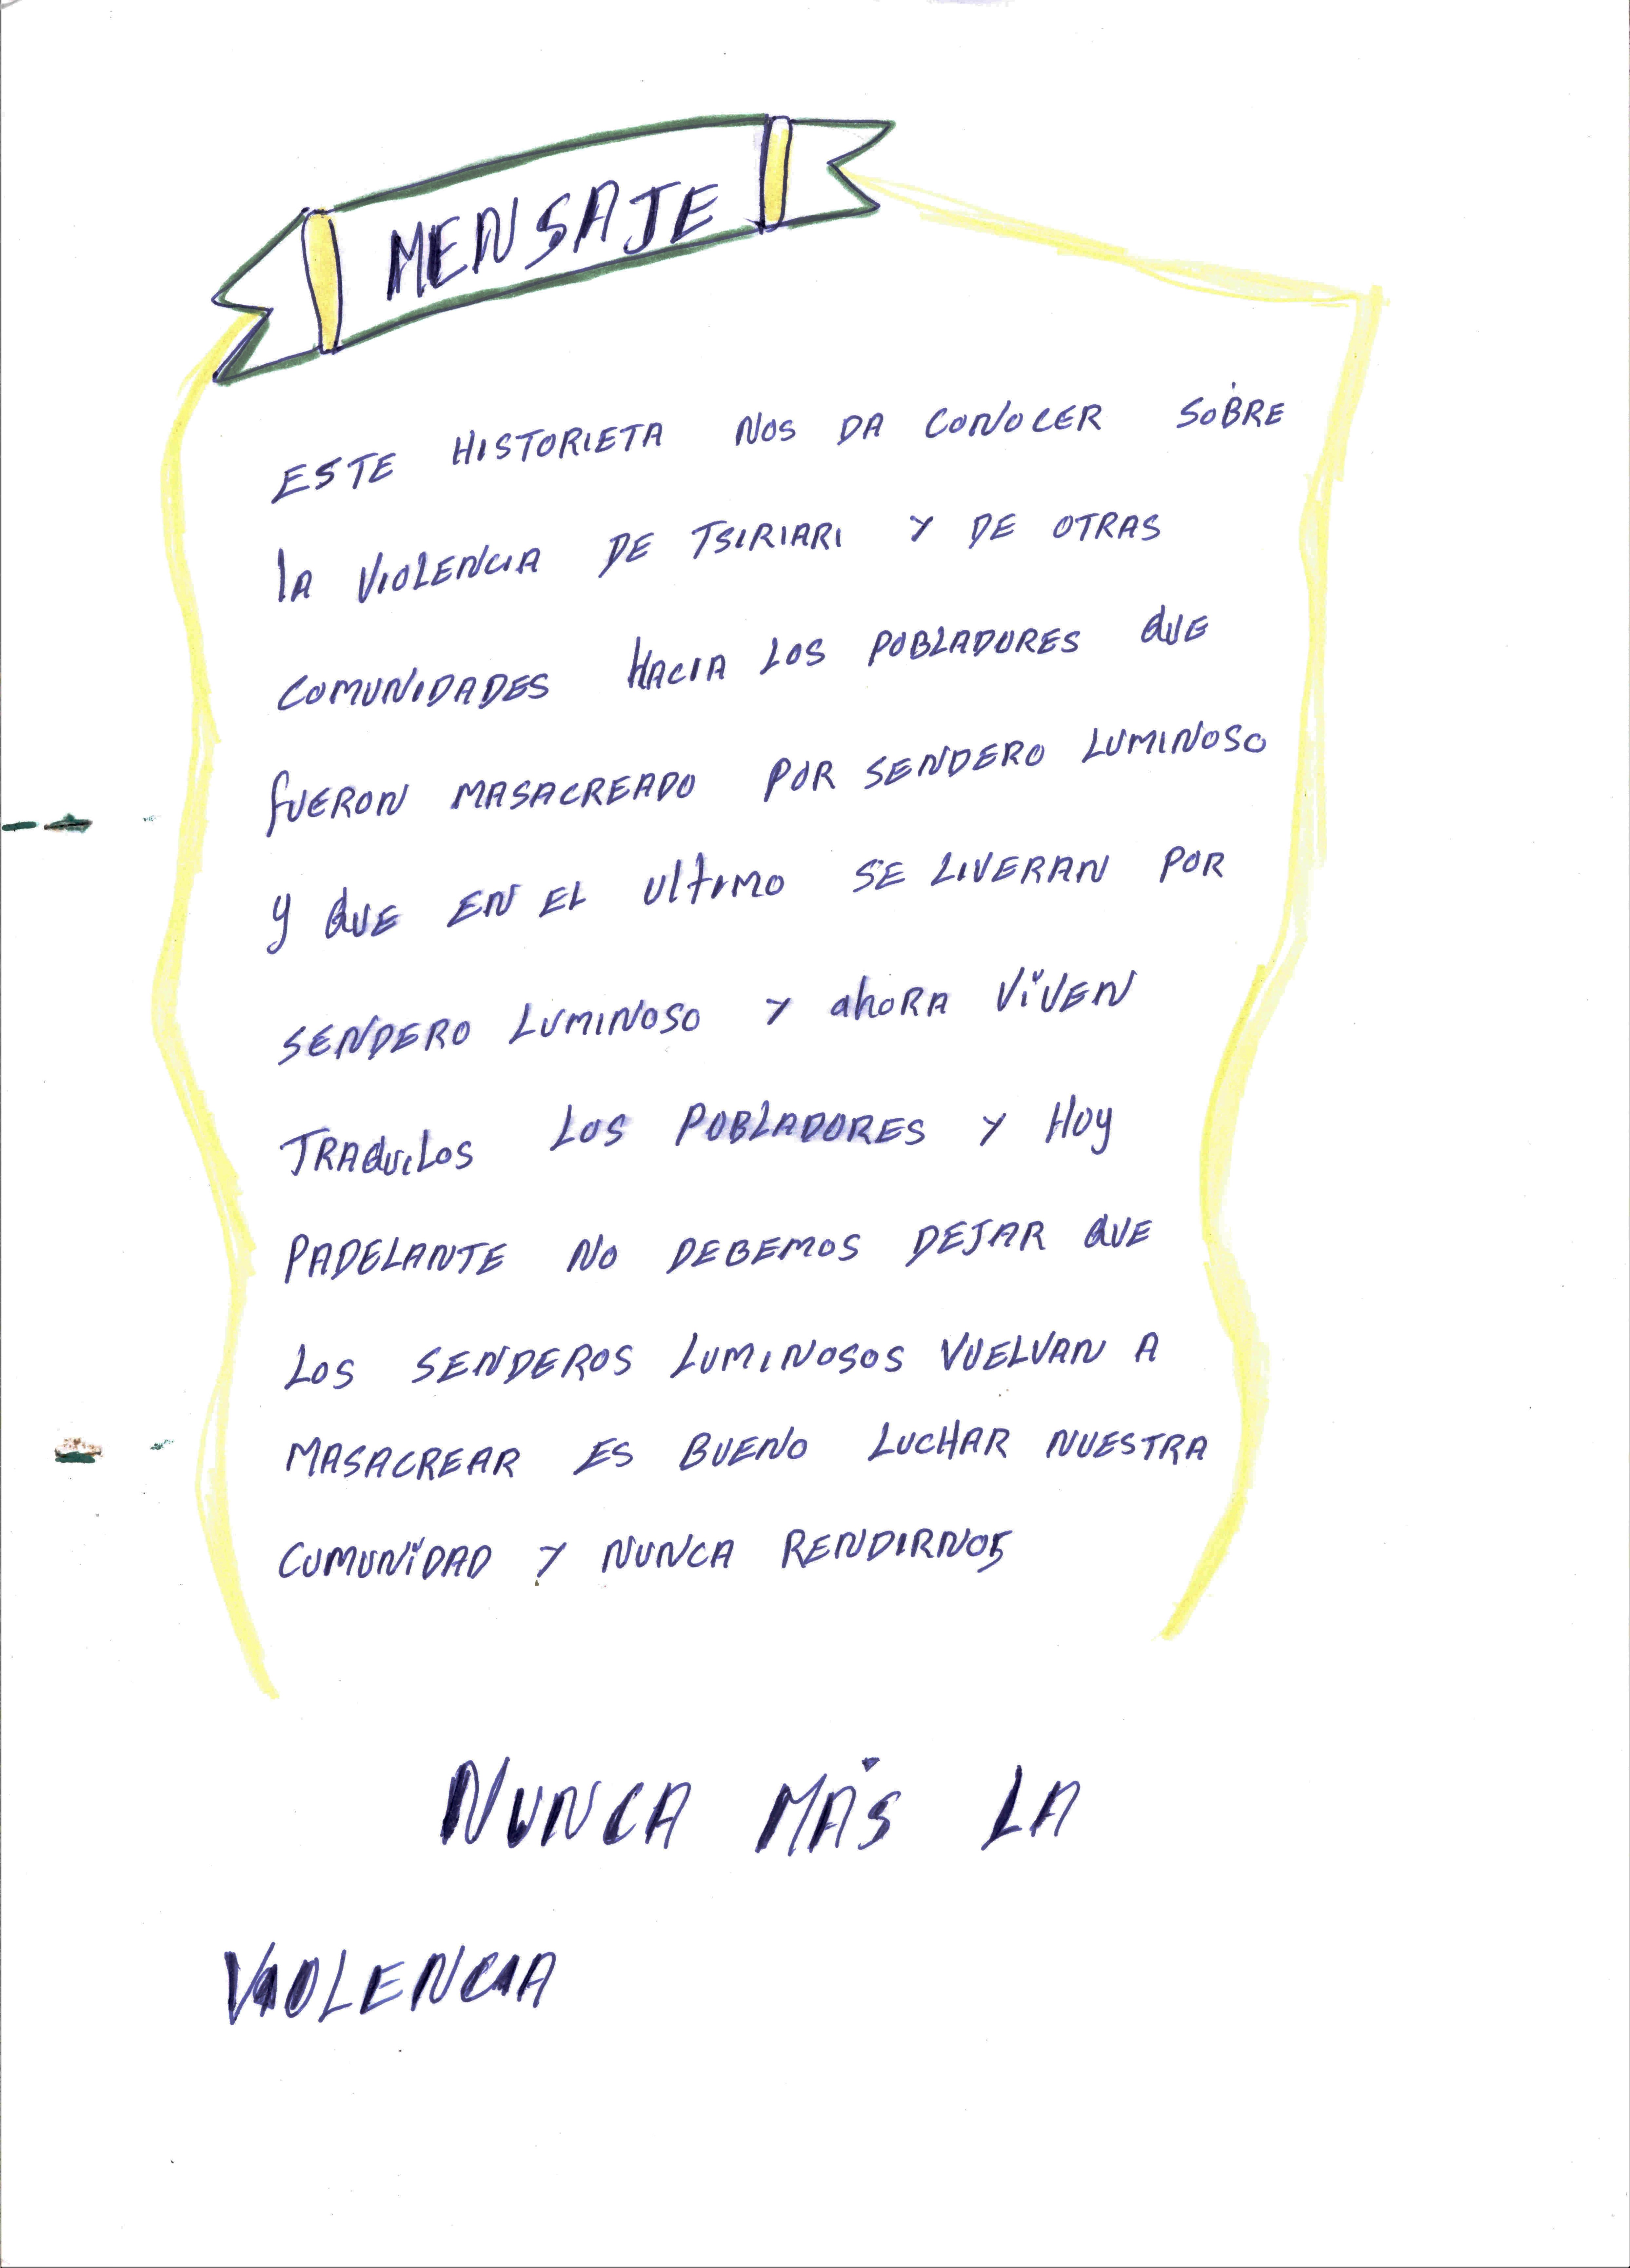 MENSAJE
ESTE HISTORIETA NOS DA CONOCER SOBRE
lA VIOLENCIA DE TSIRIARI Y DE OTRAS
COMUNIDADES HACIA LOS POBLADORES QUE
fUERON MASACREADO POR SENDERO LUMINOSO
y QUE EN EL ultimo SE LIVERAN POR
SENDERO LUMINOSO Y ahORA ViVEN
TRAQuiLos LOS POBLADORES Y HOy
PADELANTE NO DEBEMOS DEJAR QUE
LOS SENDEROS LUMINOSOS VUELVAN A
MASACREAR ES BUENO LUCHAR NUESTRA
COMUNiDAD Y NUNCA RENDIRNOS
NUNCA MÁS LA
VIOLENCIA